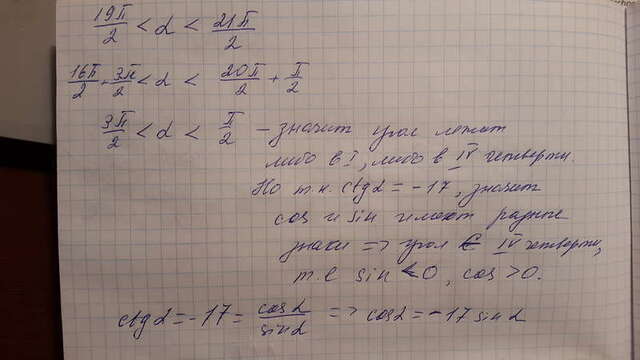 19π/2 < α < 21π/2
16π/2 + 3π/2 < α < 20π/2 + π/2
3π/2 < α < π/2 – значит угол лежит
либо в I, либо в IV четверти.
Но т.к. ctgα = -17, значит
cos и sin имеют разные
знаки => угол ∈ IV четверти,
т.е sin < 0, cos > 0.
ctgα = -17 = cosα/sinα => cosα = -17 sinα